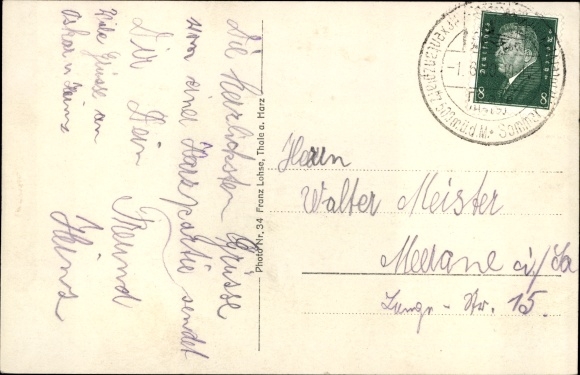 Die herzlichsten Grüsse
von einer Harzpartie sendet
Dir Dein Freund
Heinz
Viele Grüsse an
Oskar u Heinz
Photo Nr. 34 Franz Lohse, Thale a. Harz
Deutsches Reich
8 8
Herrn
Walter Meister
Meerane i/Sa
Lange-Str. 15.